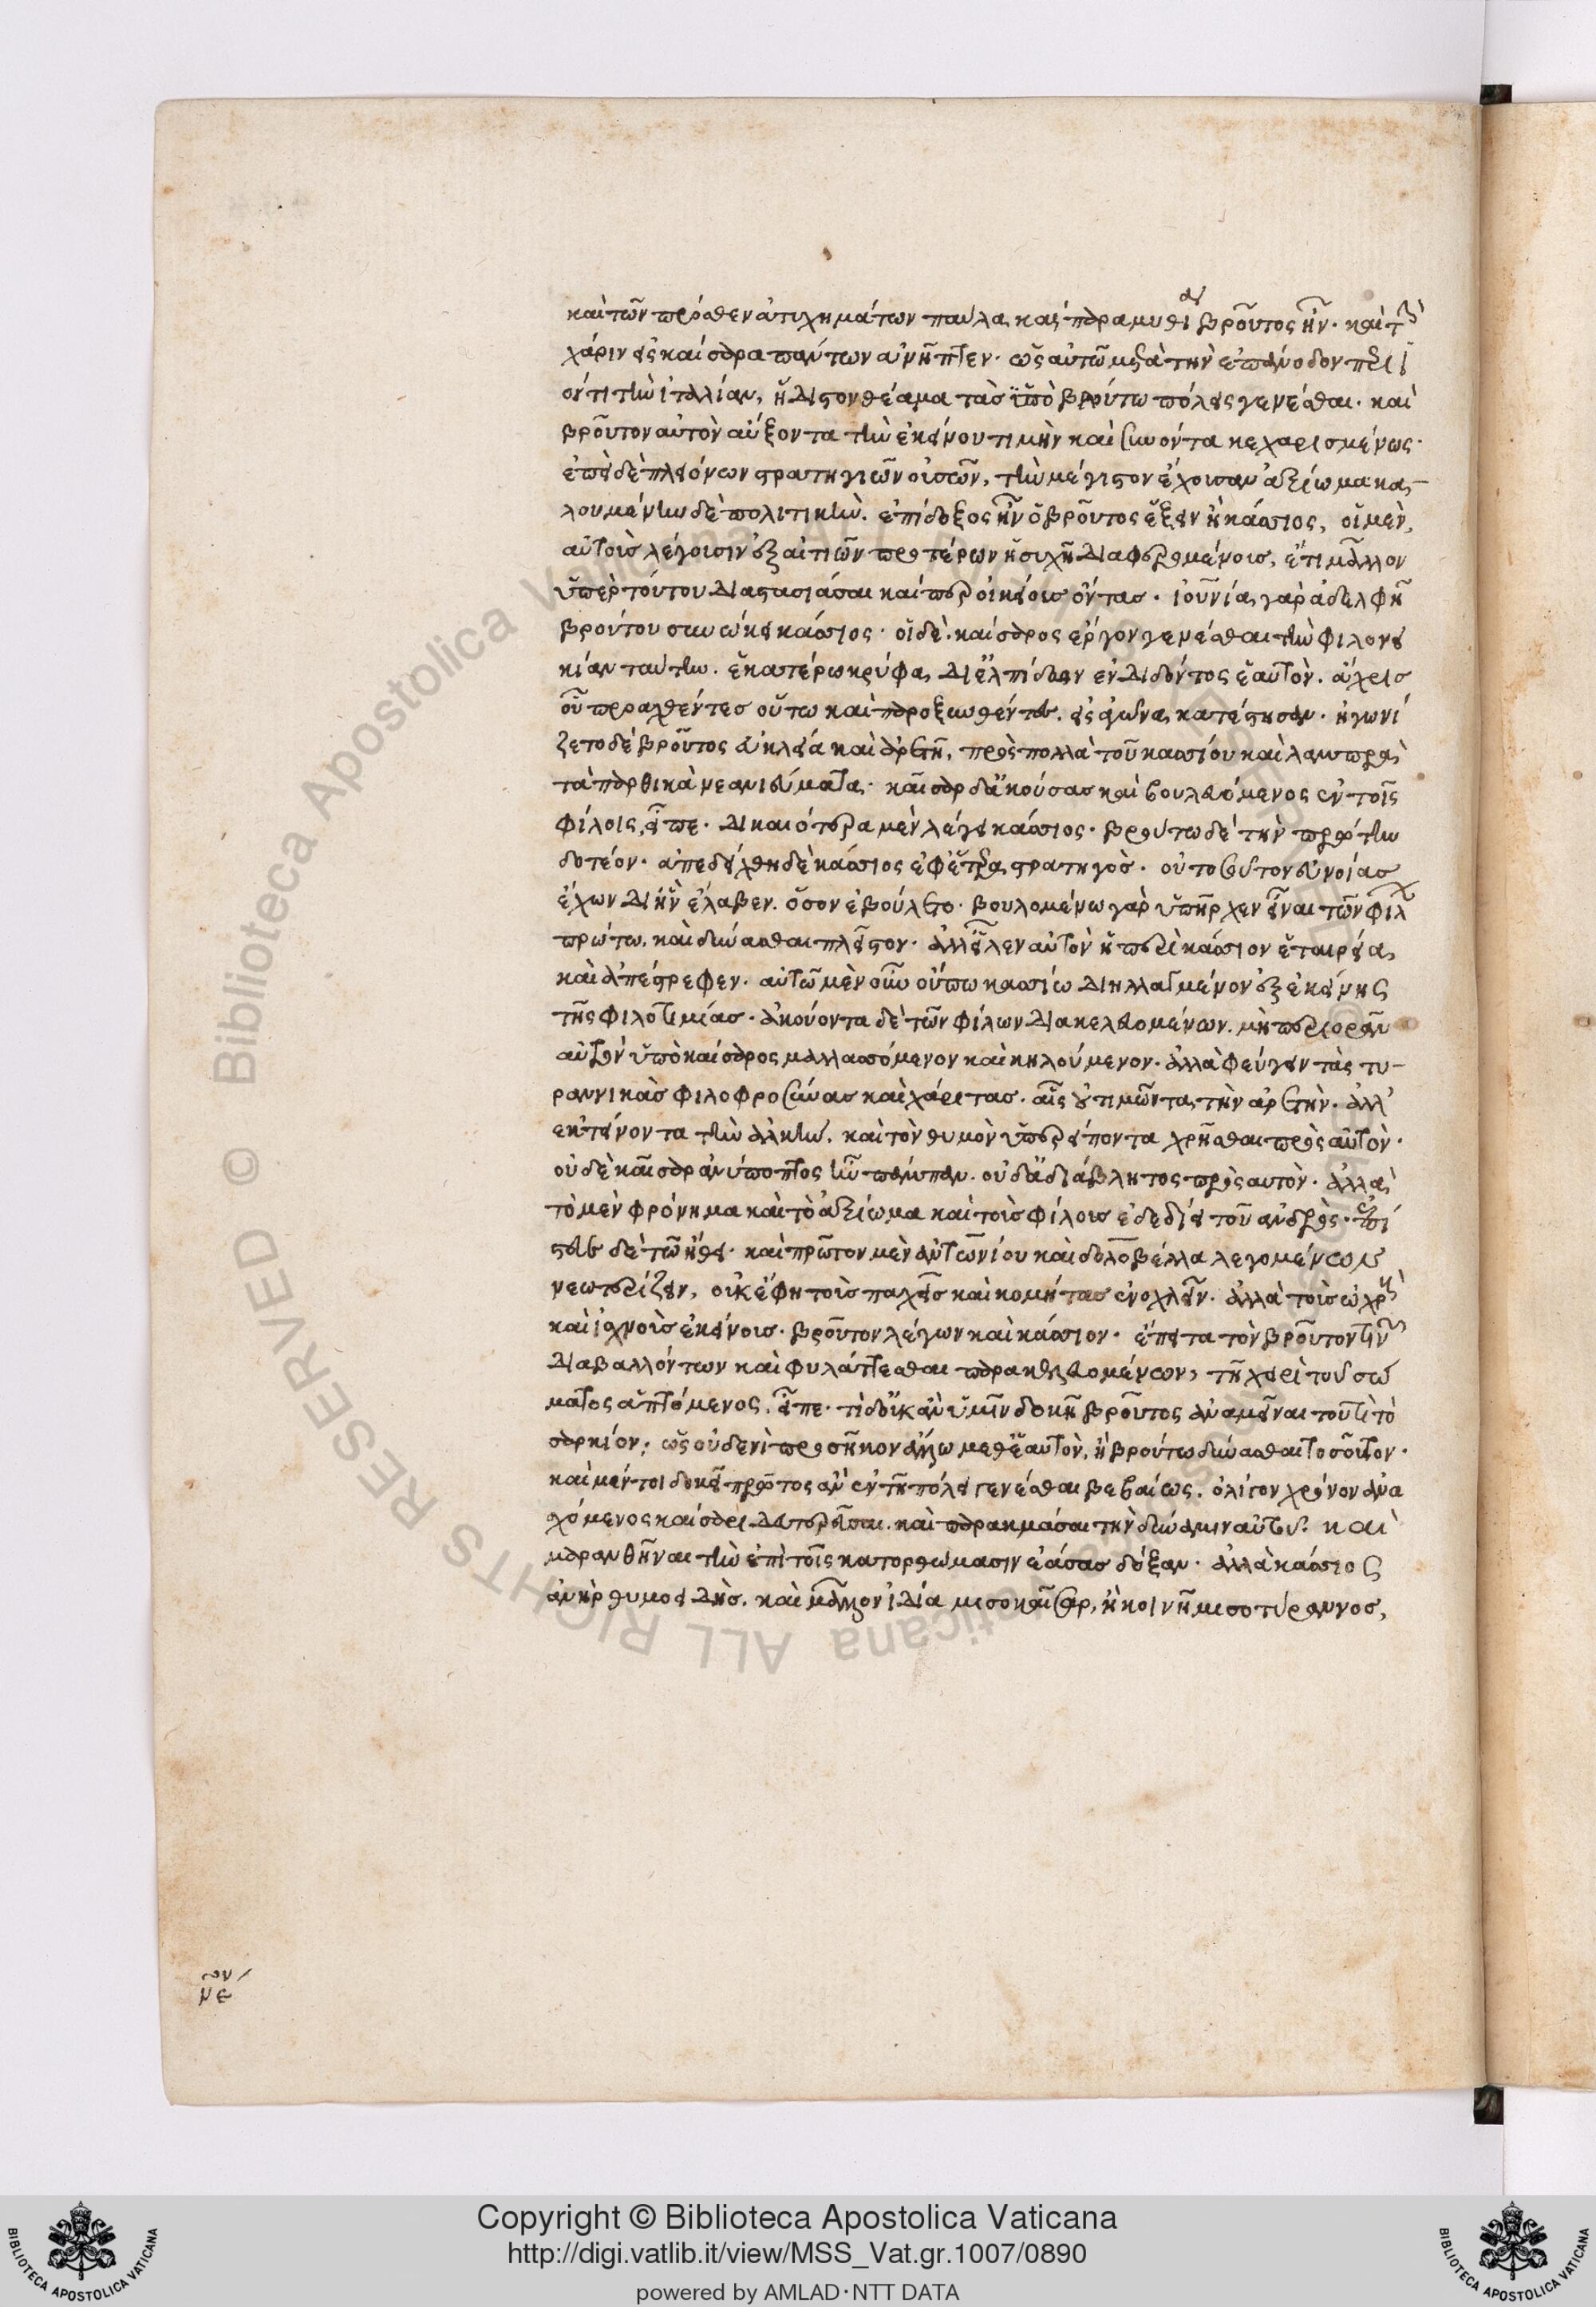 καὶ τῶν πρόσθεν ἀτυχημάτων παῦλα καὶ παραμυθία βροῦτος ἦν. καὶ τὴν
χάριν εἰς καίσαρα πάντων ἀνῆπτεν. ὡς αὐτῶ μετὰ τὴν ἐπάνοδον περιϊ
όντι τὴν ἰταλίαν, ἥδιστον θέαμα τὰς ὑπὸ βρούτω πόλεις γενέσθαι. καὶ
βροῦτον αὐτὸν αὔξοντα τὴν ἐκείνου τιμὴν καὶ συνόντα κεχαρισμένως.
ἐπεὶ δὲ πλειόνων στρατηγιῶν οὐσῶν, τὴν μέγιστον ἔχουσαν ἀξίωμα κα-
λουμένην δὲ πολιτικὴν. ἐπίδοξος ἦν ὁ βροῦτος ἕξειν ἢ κάσσιος, οἱ μὲν,
αὐτοὺς λέγουσιν ἐξ αἰτιῶν προτέρων ἡσυχῆ διαφερομένους, ἔτι μᾶλλον
ὑπὲρ τούτου διαστασιάσαι καίπερ οἰκείους ὄντας. ἰουνία γὰρ ἀδελφῆ
βρούτου συνώκει κάσσιος. οἱ δὲ. καίσαρος ἔργον γενέσθαι τὴν φιλονει
κίαν ταύτην. ἑκατέρω κρύφα δι ἐλπίδων ἐνδιδόντος ἑαυτὸν. ἄχρις
οὗ προαχθέντες οὕτω καὶ παροξυνθέντες. εἰς ἀγῶνα κατέστησαν. ἠγωνί
ζετο δὲ βροῦτος εὐκλεία καὶ ἀρετῆ, πρὸς πολλὰ τοῦ κασσίου καὶ λαμπρὰ
τὰ παρθικὰ νεανιεύματα. καῖσαρ δ ἀκούσας καὶ βουλευόμενος ἐν τοῖς
φίλοις, εἶπε. δικαιότερα μὲν λέγει κάσσιος. βρούτω δὲ τὴν πρώτην
δοτέον. ἀπεδείχθη δὲ κάσσιος ἐφ ἑτέρα στρατηγὸς. οὐ τοσοῦτον εὐνοίας
ἔχων δι ἣν ἔλαβεν. ὅσον ἐβούλετο. βουλομένω γὰρ ὑπῆρχεν εἶναι τῶν φίλ
πρώτω. καὶ δύνασθαι πλεῖστον. ἀλλ εἷλεν αὐτὸν ἡ περὶ κάσσιον ἑταιρεία
καὶ ἀπέστρεφεν. αὐτῶ μὲν οὖν οὔπω κασσίω διηλλαγμένον ἐξ ἐκείνης
τῆς φιλοτιμίας. ἀκούοντα δὲ τῶν φίλων διακελευομένων. μὴ περιορᾶν
αὑτὸν ὑπὸ καίσαρος μαλασσόμενον καὶ κηλούμενον. ἀλλὰ φεύγειν τὰς τυ-
ραννικὰς φιλοφροσύνας καὶ χάριτας. αἷς οὐ τιμῶντα τὴν ἀρετὴν. ἀλλ
ἐκτείνοντα τὴν ἀλκὴν. καὶ τὸν θυμὸν ὑπερείποντα χρῆσθαι πρὸς αὐτὸν.
οὐδὲ καῖσαρ ἀνύποπτος ἦν πάμπαν. οὐδ ἀδιάβλητος πρὸς αὐτὸν. ἀλλὰ
τὸ μὲν φρόνημα καὶ τὸ ἀξίωμα καὶ τοὺς φίλους ἐδεδίει τοῦ ἀνδρὸς. ἐπί
στευε δὲ τῶ ἤθει. καὶ πρῶτον μὲν ἀντωνίου καὶ δολοβέλλα λεγομένων
νεωτερίζειν, οὐκ ἔφη τοὺς παχεῖς καὶ κομήτας ἐνοχλεῖν. ἀλλὰ τοὺς ὠχροὺς
καὶ ἰσχνοὺς ἐκείνους. βροῦτον λέγων καὶ κάσσιον. ἔπειτα τὸν βροῦτον τινῶν
διαβαλλόντων καὶ φυλάττεσθαι παρακελευομένων, τῆ χειρὶ τοῦ σώ
ματος ἁπτόμενος. εἶπε. τί δ οὐκ ἂν ὑμῖν δοκῆ βροῦτος ἀναμεῖναι τουτὶ τὸ
σαρκίον; ὡς οὐδενὶ προσῆκον ἄλλω μεθ ἑαυτὸν, ἢ βρούτω δύνασθαι τοσοῦτον.
καὶ μέντοι δοκεῖ πρῶτος ἂν ἐν τῆ πόλει γενέσθαι βεβαίως. ὀλίγον χρόνον ἀνα
σχόμενος καίσαρι δευτερεῦσαι. καὶ παρακμάσαι τὴν δύναμιν αὐτοῦ. καὶ
μαρανθῆναι τὴν ἐπὶ τοῖς κατορθώμασιν ἐάσας δόξαν. ἀλλὰ κάσσιος
ἀνὴρ θυμοειδὴς. καὶ μᾶλλον ἰδία μισοκαῖσαρ, ἢ κοινῆ μισοτύραννος,
Copyright © Biblioteca Apostolica Vaticana
http://digi.vatlib.it/view/MSS_Vat.gr.1007/0890
powered by AMLAD·NTT DATA